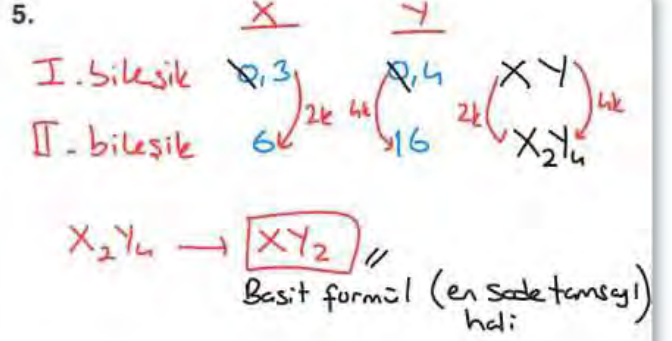 5. X Y
I. bileşik 0,3 2k 4k 0,4 2k XY 4k
II - bileşik 6 16 X₂Y₄
X₂Y₄ → XY₂ //
Basit formül (en sade tamsayılı)
hali